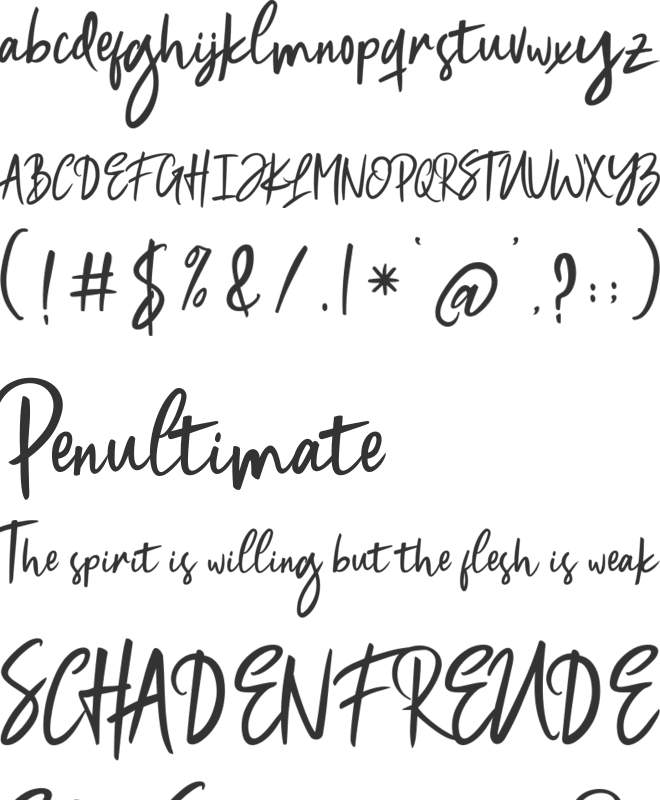 abcdefghijklmnopqrstuvwxyz
ABCDEFGHIJKLMNOPQRSTUVWXYZ
(!#$%&/.|*‘@’,?:;)
Penultimate
The spirit is willing but the flesh is weak
SCHADENFREUDE